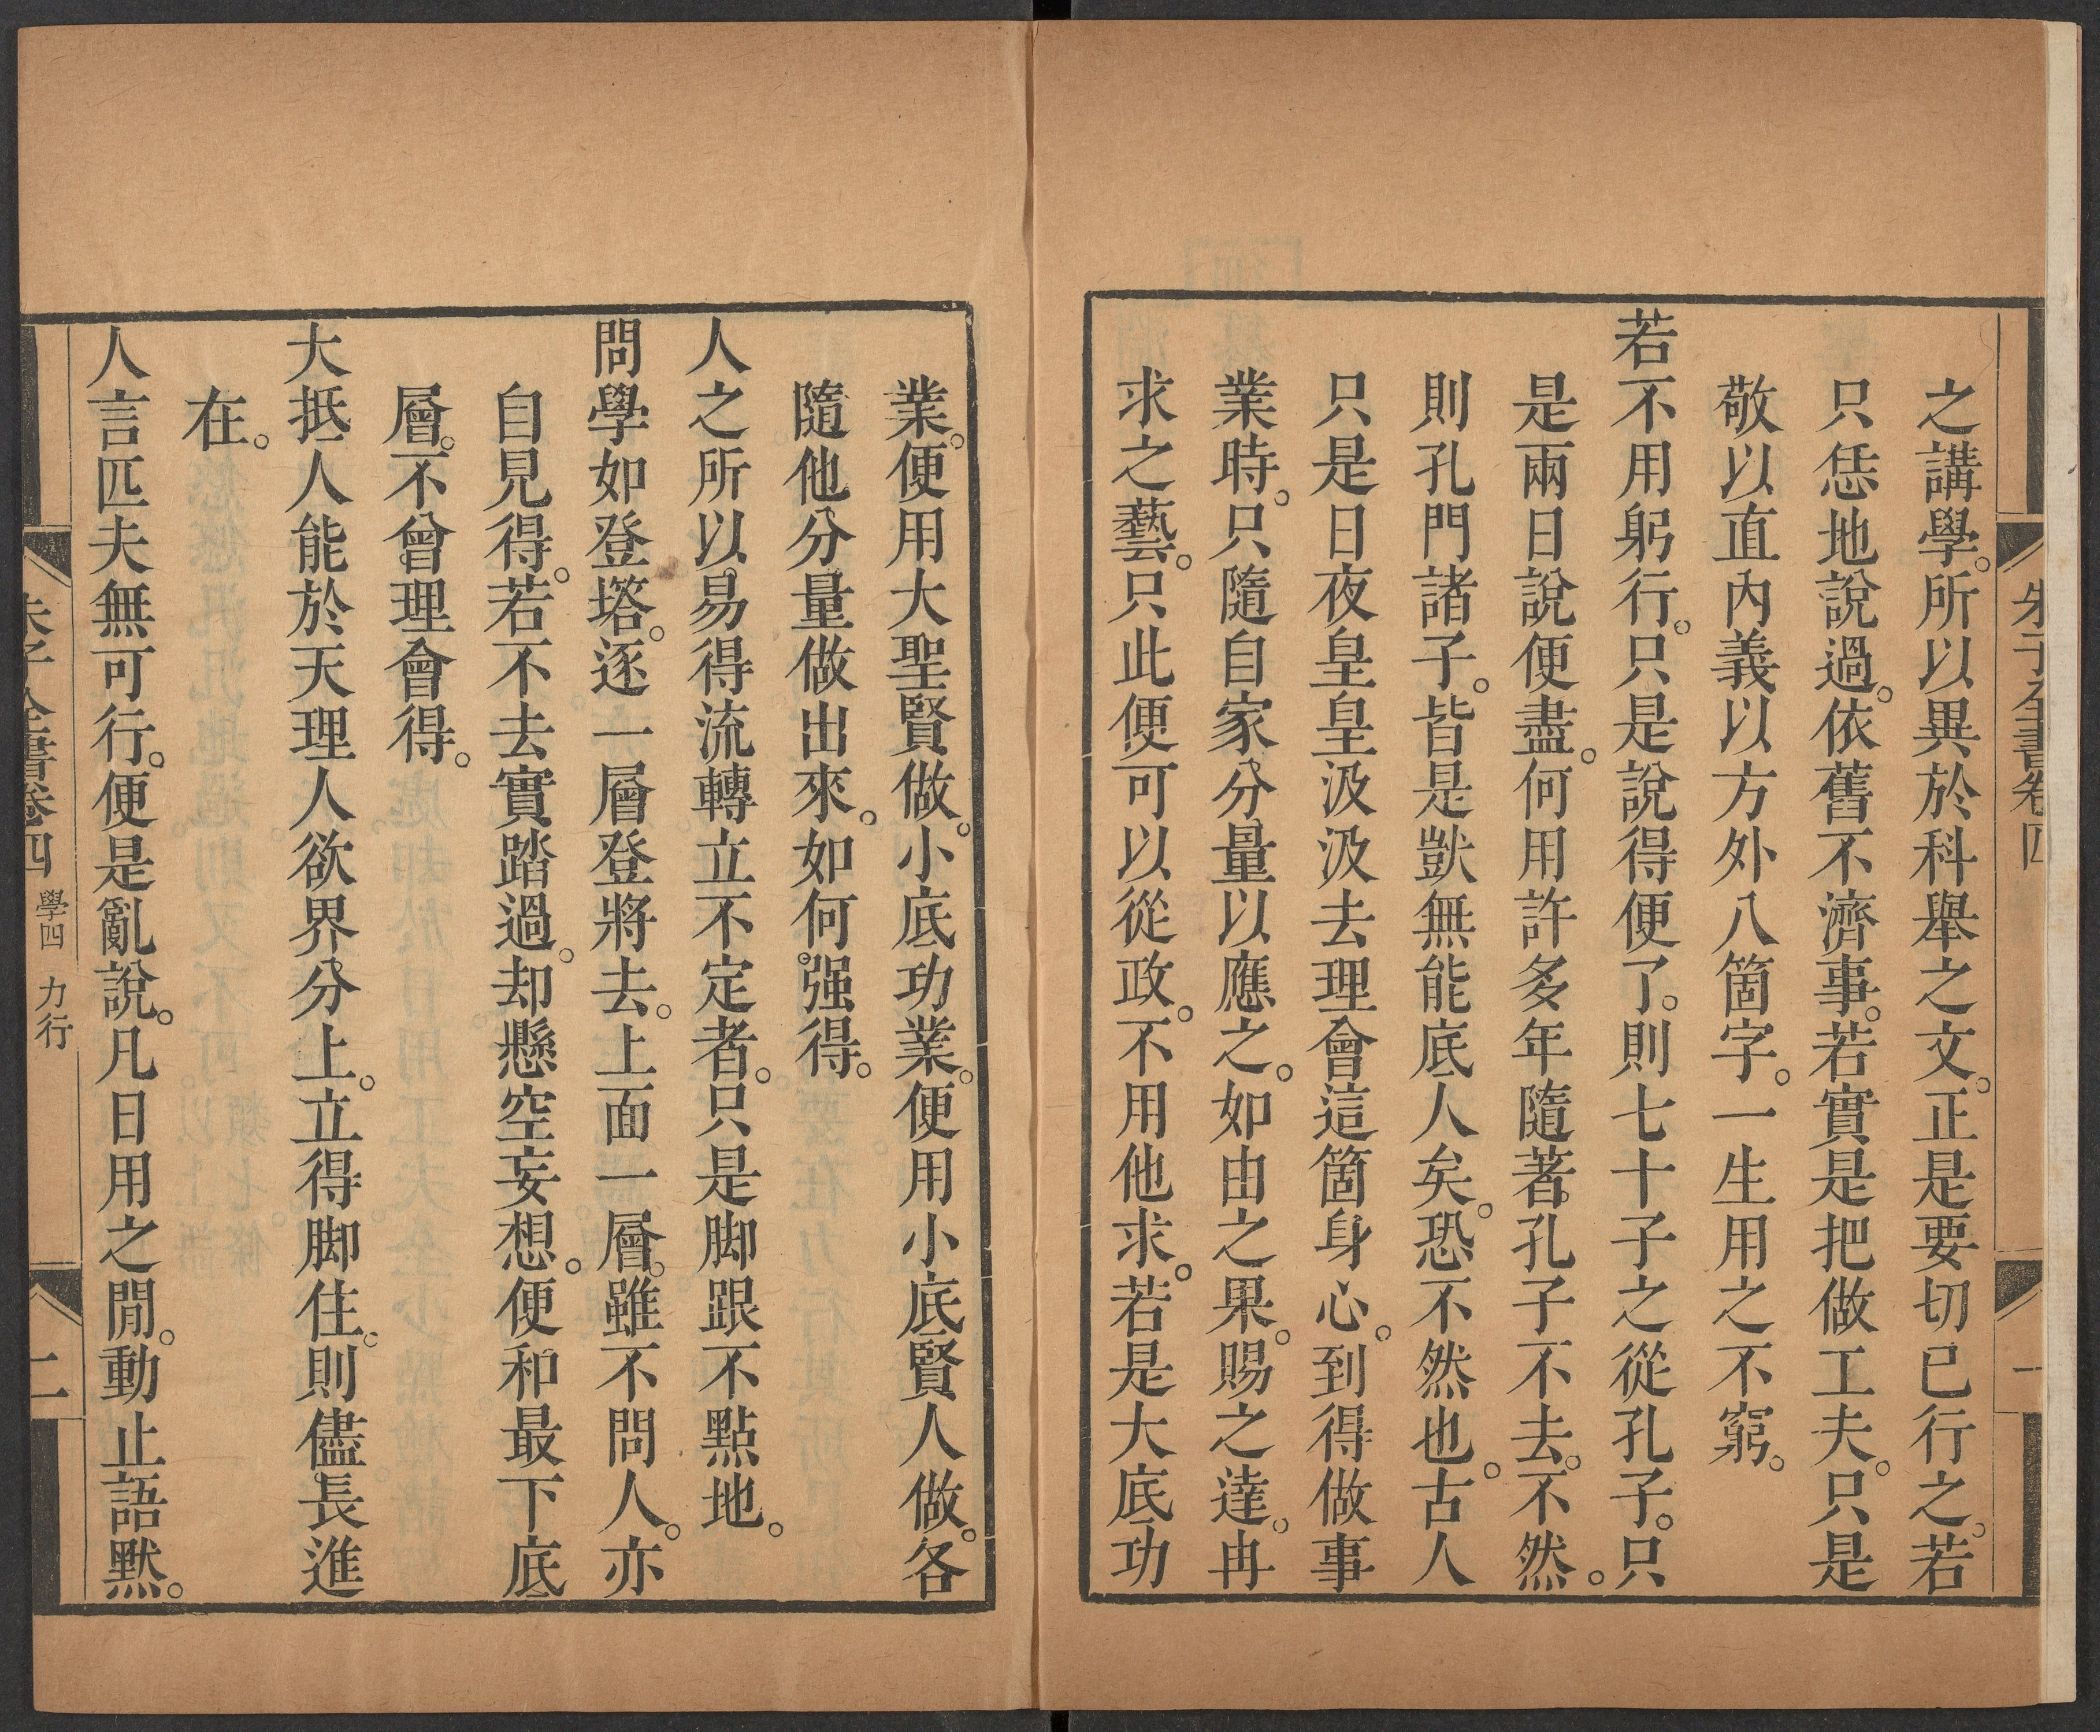 朱子全書卷四
一
之講學。所以異於科舉之文。正是要切已行之。若
只恁地說過。依舊不濟事。若實是把做工夫。只是
敬以直內義以方外八箇字。一生用之不窮。
若不用躬行。只是說得便了。則七十子之從孔子。只
是兩日說便盡。何用許多年隨著孔子不去。不然。
則孔門諸子。皆是獃無能底人矣。恐不然也。古人
只是日夜皇皇汲汲去理會這箇身心。到得做事
業時。只隨自家分量以應之。如由之果。賜之達。冉
求之藝。只此便可以從政。不用他求。若是大底功
業。便用大聖賢做。小底功業。便用小底賢人做。各
隨他分量做出來。如何强得。
人之所以易得流轉立不定者。只是脚跟不點地。
問學如登塔。逐一層登將去。上面一層。雖不問人。亦
自見得。若不去實踏過。却懸空妄想。便和最下底
層。不曾理會得。
大抵人能於天理人欲界分上。立得脚住。則儘長進
在。
人言匹夫無可行。便是亂說。凡日用之閒。動止語默。
朱子全書卷四 學四 力行
二